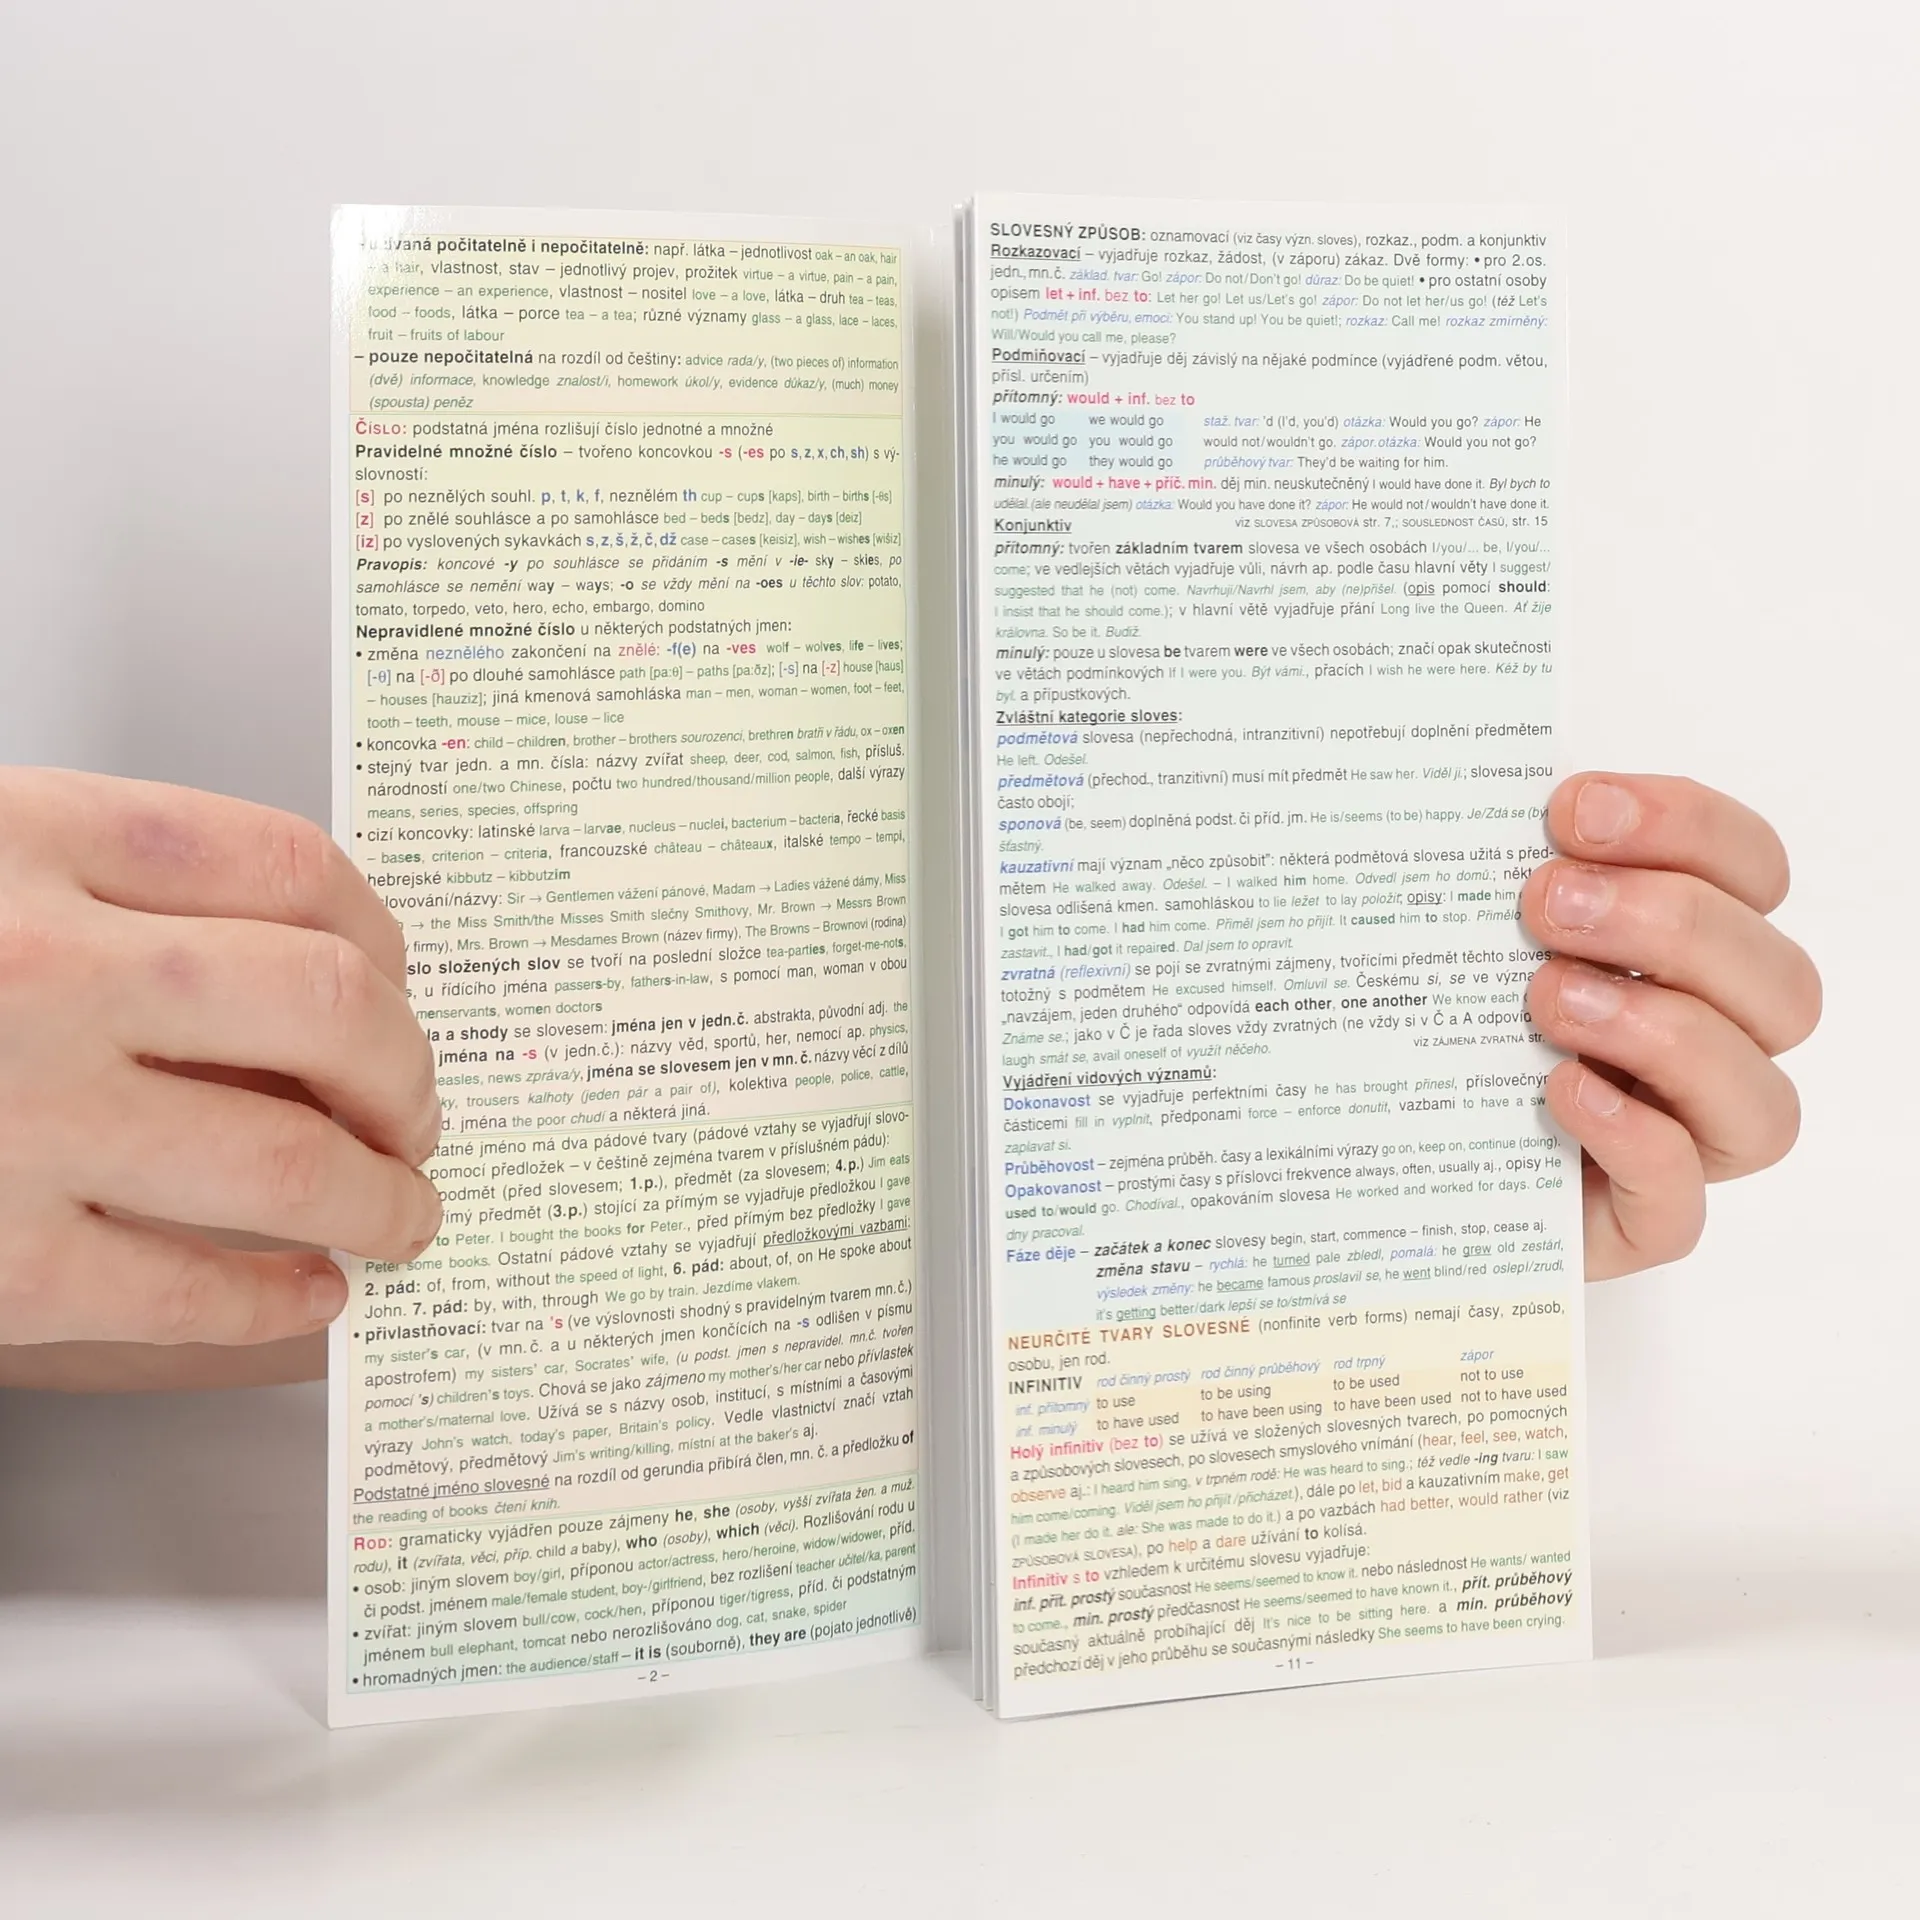 užívaná počitatelně i nepočitatelně: např. látka – jednotlivost oak – an oak, hair
– a hair, vlastnost, stav – jednotlivý projev, prožitek virtue – a virtue, pain – a pain,
experience – an experience, vlastnost – nositel love – a love, látka – druh tea – teas,
food – foods, látka – porce tea – a tea; různé významy glass – a glass, lace – laces,
fruit – fruits of labour
– pouze nepočitatelná na rozdíl od češtiny: advice rada/y, (two pieces of) information
(dvě) informace, knowledge znalost/i, homework úkol/y, evidence důkaz/y, (much) money
(spousta) peněz
ČÍSLO: podstatná jména rozlišují číslo jednotné a množné
Pravidelné množné číslo – tvořeno koncovkou -s (-es po s, z, x, ch, sh) s vý-
slovností:
[s] po neznělých souhl. p, t, k, f, neznělém th cup – cups [kaps], birth – births [-θs]
[z] po znělé souhlásce a po samohlásce bed – beds [bedz], day – days [deiz]
[iz] po vyslovených sykavkách s, z, š, ž, č, dž case – cases [keisiz], wish – wishes [wišiz]
Pravopis: koncové -y po souhlásce se přidáním -s mění v -ie- sky – skies, po
samohlásce se nemění way – ways; -o se vždy mění na -oes u těchto slov: potato,
tomato, torpedo, veto, hero, echo, embargo, domino
Nepravidlené množné číslo u některých podstatných jmen:
• změna neznělého zakončení na znělé: -f(e) na -ves wolf – wolves, life – lives;
[-θ] na [-ð] po dlouhé samohlásce path [pa:θ] – paths [pa:ðz]; [-s] na [-z] house [haus]
– houses [hauziz]; jiná kmenová samohláska man – men, woman – women, foot – feet,
tooth – teeth, mouse – mice, louse – lice
• koncovka -en: child – children, brother – brothers sourozenci, brethren bratři v řádu, ox – oxen
• stejný tvar jedn. a mn. čísla: názvy zvířat sheep, deer, cod, salmon, fish, přísluš.
národností one/two Chinese, počtu two hundred/thousand/million people, další výrazy
means, series, species, offspring
• cizí koncovky: latinské larva – larvae, nucleus – nuclei, bacterium – bacteria, řecké basis
– bases, criterion – criteria, francouzské château – châteaux, italské tempo – tempi,
hebrejské kibbutz – kibbutzim
lovování/názvy: Sir → Gentlemen vážení pánové, Madam → Ladies vážené dámy, Miss
→ the Miss Smith/the Misses Smith slečny Smithovy, Mr. Brown → Messrs Brown
firmy), Mrs. Brown → Mesdames Brown (název firmy), The Browns – Brownovi (rodina)
slo složených slov se tvoří na poslední složce tea-parties, forget-me-nots,
s, u řídícího jména passers-by, fathers-in-law, s pomocí man, woman v obou
menservants, women doctors
la a shody se slovesem: jména jen v jedn.č. abstrakta, původní adj. the
jména na -s (v jedn.č.): názvy věd, sportů, her, nemocí ap. physics,
easles, news zpráva/y, jména se slovesem jen v mn. č. názvy věcí z dílů
ky, trousers kalhoty (jeden pár a pair of), kolektiva people, police, cattle,
d. jména the poor chudí a některá jiná.
tatné jméno má dva pádové tvary (pádové vztahy se vyjadřují slovo-
pomocí předložek – v češtině zejména tvarem v příslušném pádu):
podmět (před slovesem; 1.p.), předmět (za slovesem; 4.p.) Jim eats
ímý předmět (3.p.) stojící za přímým se vyjadřuje předložkou I gave
to Peter. I bought the books for Peter., před přímým bez předložky I gave
Peter some books. Ostatní pádové vztahy se vyjadřují předložkovými vazbami:
2. pád: of, from, without the speed of light, 6. pád: about, of, on He spoke about
John. 7. pád: by, with, through We go by train. Jezdíme vlakem.
• přivlastňovací: tvar na 's (ve výslovnosti shodný s pravidelným tvarem mn.č.)
my sister's car, (v mn.č. a u některých jmen končících na -s odlišen v písmu
apostrofem) my sisters' car, Socrates' wife, (u podst. jmen s nepravidel. mn.č. tvořen
pomocí 's) children's toys. Chová se jako zájmeno my mother's/her car nebo přívlastek
a mother's/maternal love. Užívá se s názvy osob, institucí, s místními a časovými
výrazy John's watch, today's paper, Britain's policy. Vedle vlastnictví značí vztah
podmětový, předmětový Jim's writing/killing, místní at the baker's aj.
Podstatné jméno slovesné na rozdíl od gerundia přibírá člen, mn. č. a předložku of
the reading of books čtení knih.
ROD: gramaticky vyjádřen pouze zájmeny he, she (osoby, vyšší zvířata žen. a muž.
rodu), it (zvířata, věci, příp. child a baby), who (osoby), which (věci). Rozlišování rodu u
• osob: jiným slovem boy/girl, příponou actor/actress, hero/heroine, widow/widower, příd.
či podst. jménem male/female student, boy-/girlfriend, bez rozlišení teacher učitel/ka, parent
• zvířat: jiným slovem bull/cow, cock/hen, příponou tiger/tigress, příd. či podstatným
jménem bull elephant, tomcat nebo nerozlišováno dog, cat, snake, spider
• hromadných jmen: the audience/staff – it is (souborně), they are (pojato jednotlivě)
– 2 –
SLOVESNÝ ZPŮSOB: oznamovací (viz časy význ. sloves), rozkaz., podm. a konjunktiv
Rozkazovací – vyjadřuje rozkaz, žádost, (v záporu) zákaz. Dvě formy: • pro 2.os.
jedn., mn.č. základ. tvar: Go! zápor: Do not/Don't go! důraz: Do be quiet! • pro ostatní osoby
opisem let + inf. bez to: Let her go! Let us/Let's go! zápor: Do not let her/us go! (též Let's
not!) Podmět při výběru, emoci: You stand up! You be quiet!; rozkaz: Call me! rozkaz zmírněný:
Will/Would you call me, please?
Podmiňovací – vyjadřuje děj závislý na nějaké podmínce (vyjádřené podm. větou,
přísl. určením)
přítomný: would + inf. bez to
I would go we would go staž. tvar: 'd (I'd, you'd) otázka: Would you go? zápor: He
you would go you would go would not/wouldn't go. zápor.otázka: Would you not go?
he would go they would go průběhový tvar: They'd be waiting for him.
minulý: would + have + příč. min. děj min. neuskutečněný I would have done it. Byl bych to
udělal.(ale neudělal jsem) otázka: Would you have done it? zápor: He would not/wouldn't have done it.
Konjunktiv viz SLOVESA ZPŮSOBOVÁ str. 7,; SOUSLEDNOST ČASŮ, str. 15
přítomný: tvořen základním tvarem slovesa ve všech osobách I/you/... be, I/you/...
come; ve vedlejších větách vyjadřuje vůli, návrh ap. podle času hlavní věty I suggest/
suggested that he (not) come. Navrhuji/Navrhl jsem, aby (ne)přišel. (opis pomocí should:
I insist that he should come.); v hlavní větě vyjadřuje přání Long live the Queen. Ať žije
královna. So be it. Budiž.
minulý: pouze u slovesa be tvarem were ve všech osobách; značí opak skutečnosti
ve větách podmínkových If I were you. Být vámi., přacích I wish he were here. Kéž by tu
byl. a přípustkových.
Zvláštní kategorie sloves:
podmětová slovesa (nepřechodná, intranzitivní) nepotřebují doplnění předmětem
He left. Odešel.
předmětová (přechod., tranzitivní) musí mít předmět He saw her. Viděl ji.; slovesa jsou
často obojí;
sponová (be, seem) doplněná podst. či příd. jm. He is/seems (to be) happy. Je/Zdá se (být
šťastný.
kauzativní mají význam „něco způsobit“: některá podmětová slovesa užitá s před-
mětem He walked away. Odešel. – I walked him home. Odvedl jsem ho domů.; někt
slovesa odlišená kmen. samohláskou to lie ležet to lay položit; opisy: I made him
I got him to come. I had him come. Přiměl jsem ho přijít. It caused him to stop. Přimělo
zastavit., I had/got it repaired. Dal jsem to opravit.
zvratná (reflexivní) se pojí se zvratnými zájmeny, tvořícími předmět těchto sloves
totožný s podmětem He excused himself. Omluvil se. Českému si, se ve význa
„navzájem, jeden druhého“ odpovídá each other, one another We know each
Známe se.; jako v Č je řada sloves vždy zvratných (ne vždy si v Č a A odpovíd
laugh smát se, avail oneself of využít něčeho. viz ZÁJMENA ZVRATNÁ str.
Vyjádření vidových významů:
Dokonavost se vyjadřuje perfektními časy he has brought přinesl, příslovečným
částicemi fill in vyplnit, předponami force – enforce donutit, vazbami to have a sw
zaplavat si.
Průběhovost – zejména průběh. časy a lexikálními výrazy go on, keep on, continue (doing).
Opakovanost – prostými časy s příslovci frekvence always, often, usually aj., opisy He
used to/would go. Chodíval., opakováním slovesa He worked and worked for days. Celé
dny pracoval.
Fáze děje – začátek a konec slovesy begin, start, commence – finish, stop, cease aj.
změna stavu – rychlá: he turned pale zbledl, pomalá: he grew old zestárl,
výsledek změny: he became famous proslavil se, he went blind/red oslepl/zrudl,
it's getting better/dark lepší se to/stmívá se
NEURČITÉ TVARY SLOVESNÉ (nonfinite verb forms) nemají časy, způsob,
osobu, jen rod.
INFINITIV rod činný prostý rod činný průběhový rod trpný zápor
inf. přítomný to use to be using to be used not to use
inf. minulý to have used to have been using to have been used not to have used
Holý infinitiv (bez to) se užívá ve složených slovesných tvarech, po pomocných
a způsobových slovesech, po slovesech smyslového vnímání (hear, feel, see, watch,
observe aj.: I heard him sing, v trpném rodě: He was heard to sing.; též vedle -ing tvaru: I saw
him come/coming. Viděl jsem ho přijít/přicházet.), dále po let, bid a kauzativním make, get
(I made her do it. ale: She was made to do it.) a po vazbách had better, would rather (viz
ZPŮSOBOVÁ SLOVESA), po help a dare užívání to kolísá.
Infinitiv s to vzhledem k určitému slovesu vyjadřuje:
inf. přít. prostý současnost He seems/seemed to know it. nebo následnost He wants/ wanted
to come., min. prostý předčasnost He seems/seemed to have known it., přít. průběhový
současný aktuálně probíhající děj It's nice to be sitting here. a min. průběhový
předchozí děj v jeho průběhu se současnými následky She seems to have been crying.
– 11 –